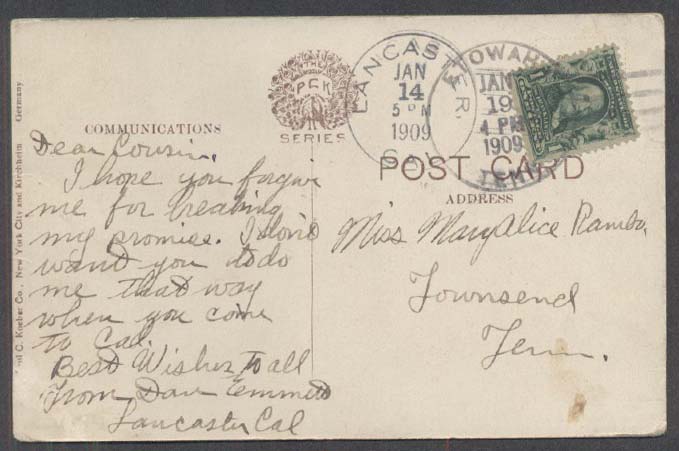 Paul C. Koeber Co., New York City and Kirchheim Germany
THE
P C K
SERIES
LANCASTER
JAN
14
5 PM
1909
CAL
ETOWAH
R.
JAN
19
4 PM
1909
TENN
1 1
COMMUNICATIONS
POST CARD
ADDRESS
Dear Cousin.
I hope you forgive
me for breaking
my promise. I don't
want you to do
me that way
when you come
to Cal.
Best Wishes to all
From Dave Emmett
Lancaster Cal
Miss Mary Alice Rambo.
Townsend
Tenn.